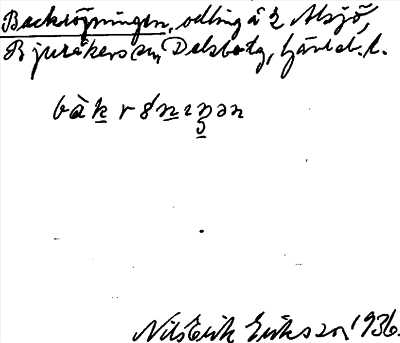 Backröjningen, odling å Alsjö,
Bjuråkers sn, Delsbo tg, Gävleb. l.
bàkrönıŋən
Nils Erik Eriksson 1936.